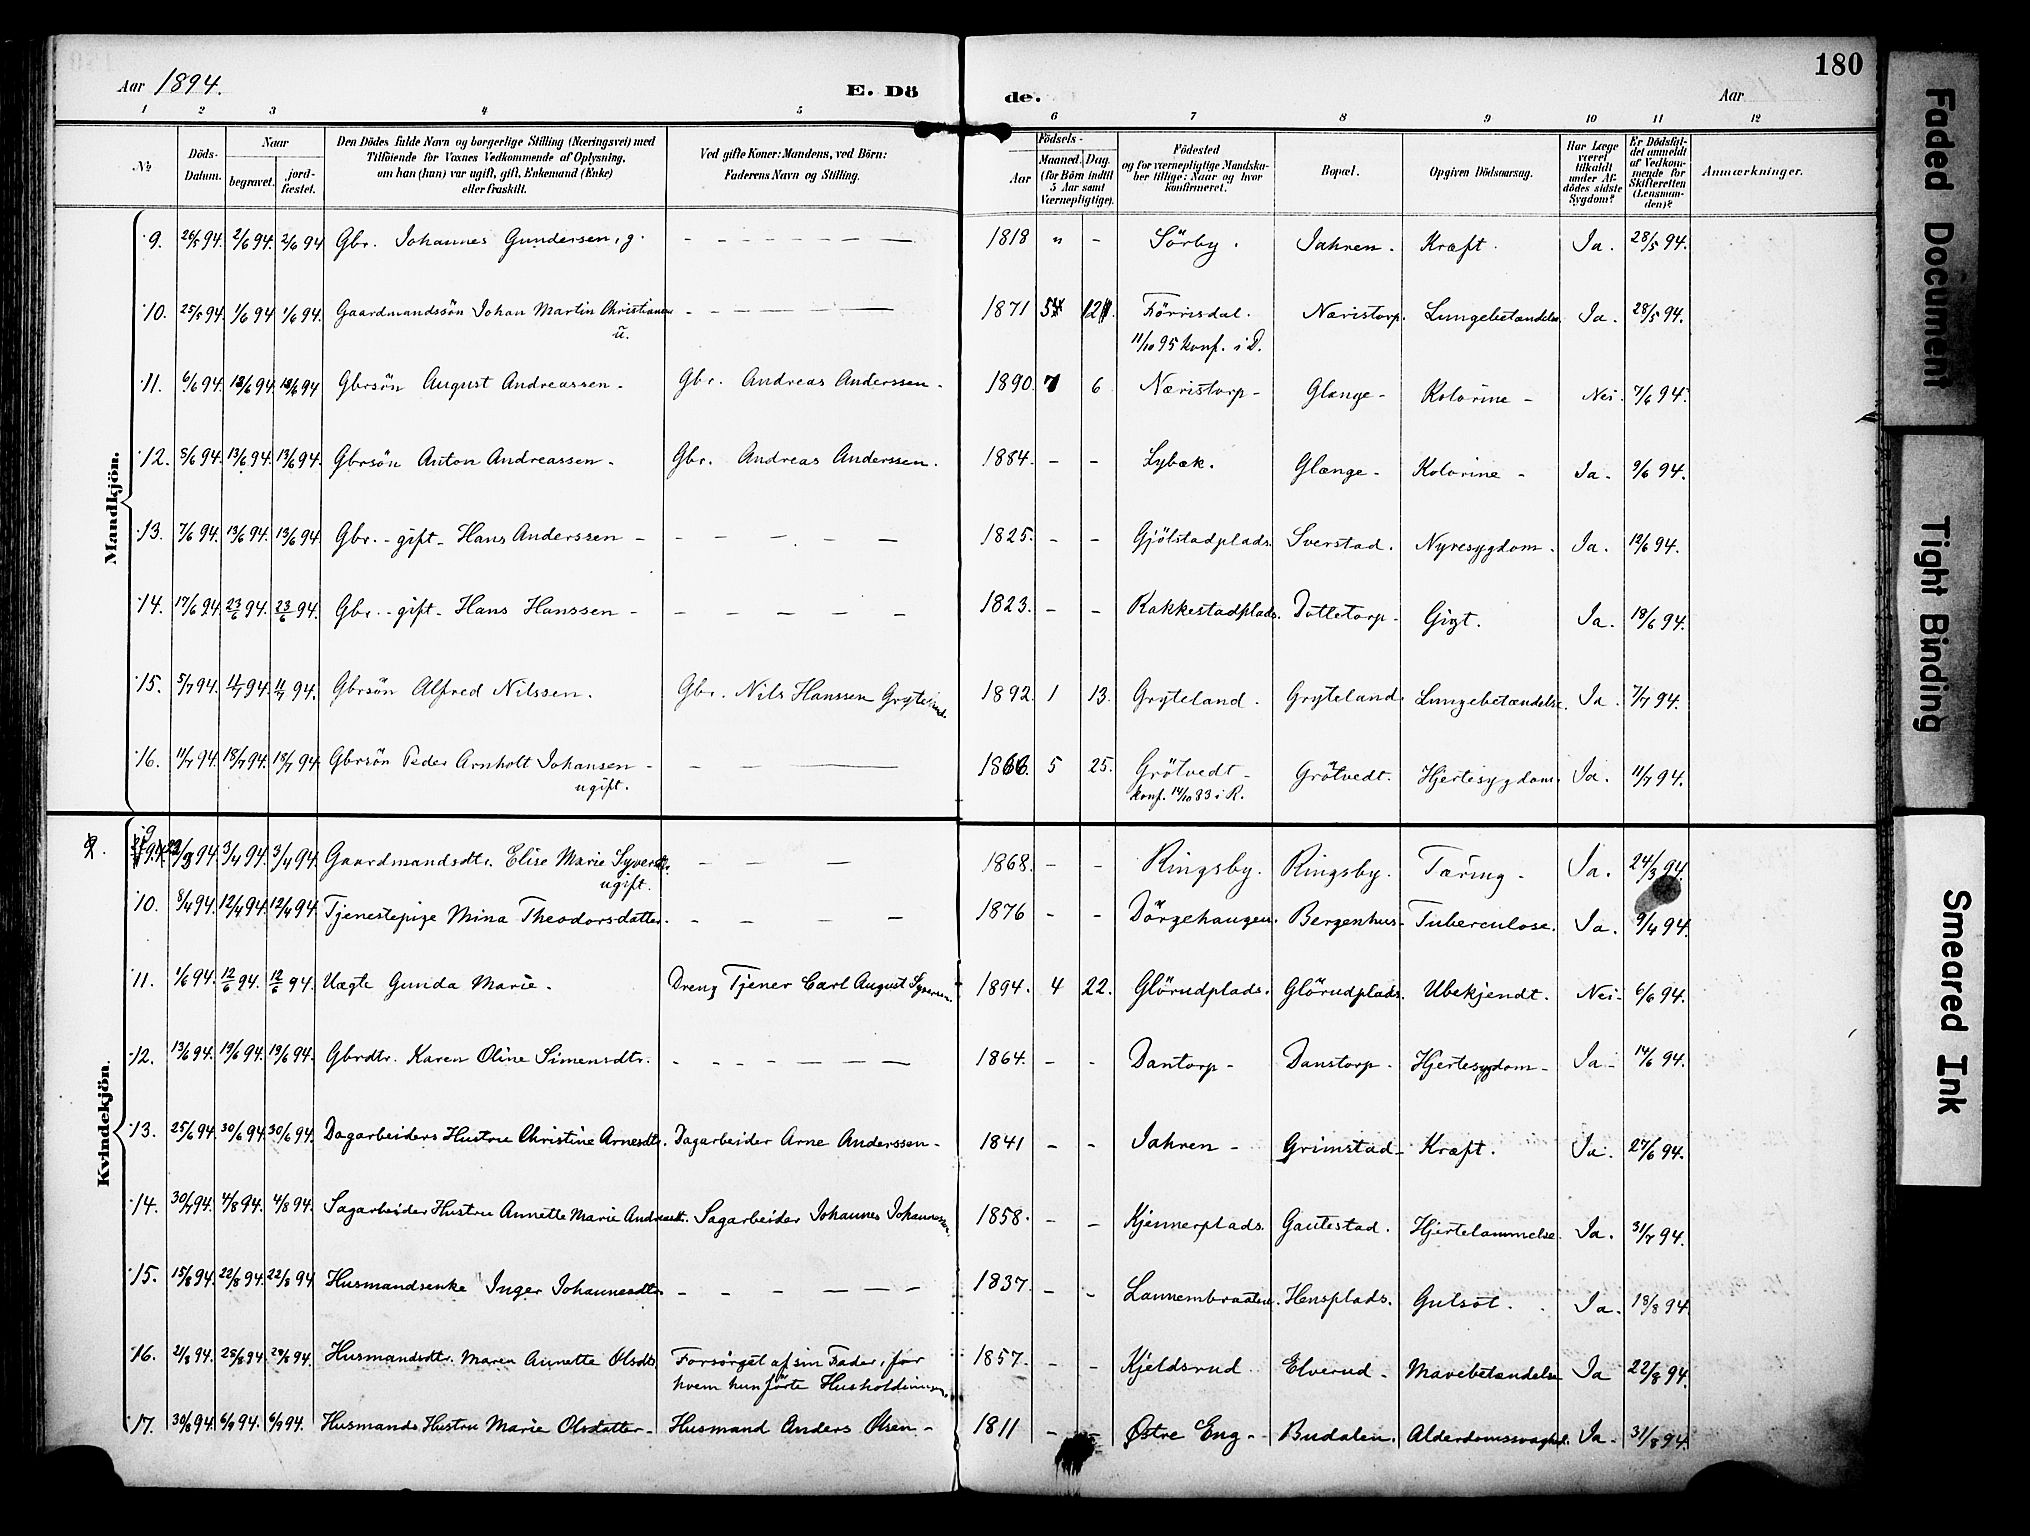 Aar 1894.
E. Dö
de.
Aar
180
1 2 3 4 5 6 7 8 9 10 11 12
No
Döds-Datum.
Naar
begravet.
jord-fæstet.
Den Dödes fulde Navn og borgerlige Stilling (Næringsvei) med
Tilföiende for Voxnes Vedkommende af Oplysning,
om han (hun) var ugift, gift, Enkemand (Enke)
eller fraskilt.
Ved gifte Koner: Mandens, ved Börn:
Faderens Navn og Stilling.
Födsels-
Aar
Maaned. Dag.
(for Börn indtil
5 Aar samt
Værnepligtige).
Födested
og for værnepligtige Mandska-
ber tillige: Naar og hvor
konfirmeret.
Bopæl.
Opgiven Dödsaarsag.
Har Læge
været
tilkaldt
under Af-
dödes sidste
Sygdom?
Er Dödsfal-
det anmeldt
af Vedkom-
mende for
Skifteretten
(Lensman-
den)?
Anmærkninger.
Mandkjön.
9. 26/5 94. 2/6 94. 2/6 94 Gbr. Johannes Gundersen, g. - - - - - - 1818 " - Sörby. Jahren. Kræft. Ja. 28/5 94.
10. 25/5 94. 1/6 94 1/6 94. Gaardmandssön Johan Martin Christiansen - - - - - 1871 Förrisdal. Næristorp. Lungebetændelse. Ja. 28/5 94.
u. 11/10 95 konf. i D.
11. 6/6 94. 18/6 94. 18/6 94 Gbrsön August Andreassen - Gbr. Andreas Anderssen - 1890. 7 6 Næristorp - Glænge - Kolorine - Nei. 7/6 94.
12. 8/6 94. 13/6 94. 13/6 94. Gbrsön Anton Andreassen - Gbr. Andreas Anderssen. 1884. - - Lybæk. Glænge - Kolorine - Ja. 9/6 94.
13. 7/6 94. 13/6 94. 13/6 94. Gbr. - gift - Hans Anderssen - - - - - - 1825. - - Gjölstadplads. Sverstad. Nyresygdom. Ja. 12/6 94.
14. 17/6 94. 23/6 94. 23/6 94. Gbr. - gift - Hans Hanssen - - - - - - 1823. - - Rakkestadplads. Dotletorp - Gigt. Ja. 18/6 94.
15. 5/7 94. 11/7 94. 11/7 94. Gbrsön Alfred Nilssen. Gbr. Nils Hanssen Gryteland. 1892. 1 13. Gryteland. Gryteland. Lungebetændelse. Ja. 7/7 94.
16. 11/7 94. 18/7 94. 18/7 94. Gbrsön Peder Arnholt Johansen - - - - 1866. 5 25. Grötvedt - Grötvedt. Hjertesygdom. Ja. 11/7 94.
ugift. konf. 14/10 83 i R.
Kvindekjön.
9 94. 3/4 94. 3/4 94. Gaardmandsdtr. Elise Marie Syversdtr. - - - 1868. - - Ringsby. Ringsby. Tæring - Ja. 24/3 94.
ugift.
10. 8/4 94. 12/4 94. 12/4 94. Tjenestepige Mina Theodorsdatter. - - - - 1876 - - Dörgehaugen. Bergenhus - Tuberculose. Ja. 9/4 94.
11. 1/6 94. 12/6 94. 12/6 94. Uægte Gunda Marie. Dreng Tjener Carl August Syversen. 1894. 4 22. Glörudplads. Glörudplads. Ubekjendt. Nei. 6/6 94.
12. 13/6 94. 19/6 94. 19/6 94. Gbrdtr. Karen Oline Simensdtr. - - - - - - 1864. - - Dantorp - Danstorp - Hjertesygdom - Ja - 14/6 94.
13. 25/6 94. 30/6 94. 30/6 94. Dagarbeiders Hustru Christine Arnesdtr. Dagarbeider Arne Anderssen - 1841 - - Jahren - Grimstad - Kræft. Ja. 27/6 94.
14. 30/7 94. 4/8 94. 4/8 94. Sagarbeider Hustru Annette Marie Andreasdt. Sagarbeider Johannes Johannessen. 1858. - - Kjennerplads. Gautestad. Hjertelammelse. Ja. 31/7 94.
15. 15/8 94. 22/8 94. 22/8 94 Husmandsenke Inger Johannesdtr - - - - - - 1837. - - Lannembraaten. Hensplads. Gulsot. Ja. 18/8 94.
16. 21/8 94. 28/8 94. 28/8 94. Husmandsdtr. Maren Annette Olsdtr Forsörget af sin Fader, for 1857. - - Kjeldsrud. Elverud - Mavebetændelse Ja 22/8 94.
hvem hun förte Husholdningen.
17. 30/8 94. 6/9 94. 6/9 94. Husmands Hustru Marie Olsdatter - Husmand Anders Olsen - 1811 - - Østre Eng - Budalen. Alderdomssvaghed. Ja. 31/8 94.
Faded Document
Tight Binding
Smeared Ink